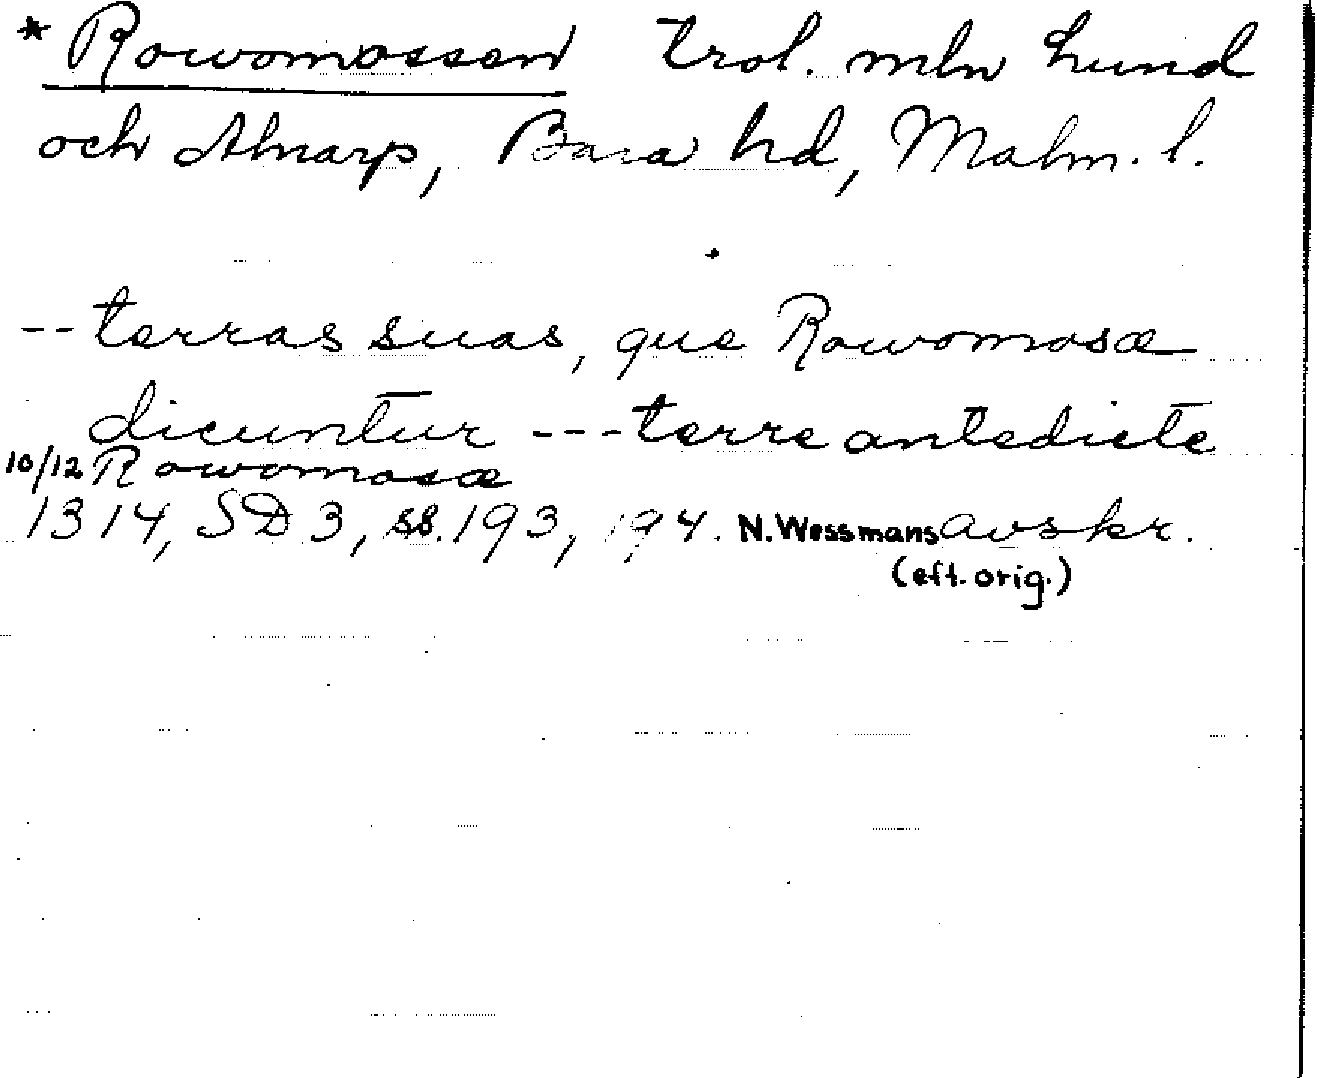 * Rowomossen Trol. mln Lund
och Alnarp, Bara hd, Malm. l.
-- terras suas, que Rowomosæ
dicuntur --- terre antedicte
10/12 Rowomosæ
1314, SD 3, ss. 193, 194. N. Wessmans avskr.
(eft. orig.)